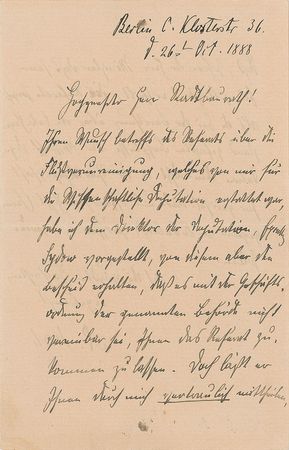 Berlin C. Klosterstr. 36.
d. 26t Oct. 1888
Hochgeehrter Herr Stadtbaurath!
Ihren Wunsch betreffs des Referats über die
Flußverunreinigung, welches von mir für
die Wissenschaftliche Deputation erstattet war,
habe ich dem Direktor der Deputation,
Sydow vorgestellt, von diesem aber den
Bescheid erhalten, daß es mit der Geschäfts-
ordnung der genannten Behörde nicht
vereinbar sei, Ihnen das Referat zu-
kommen zu lassen. Doch läßt er
Ihnen durch mich vertraulich mittheilen,